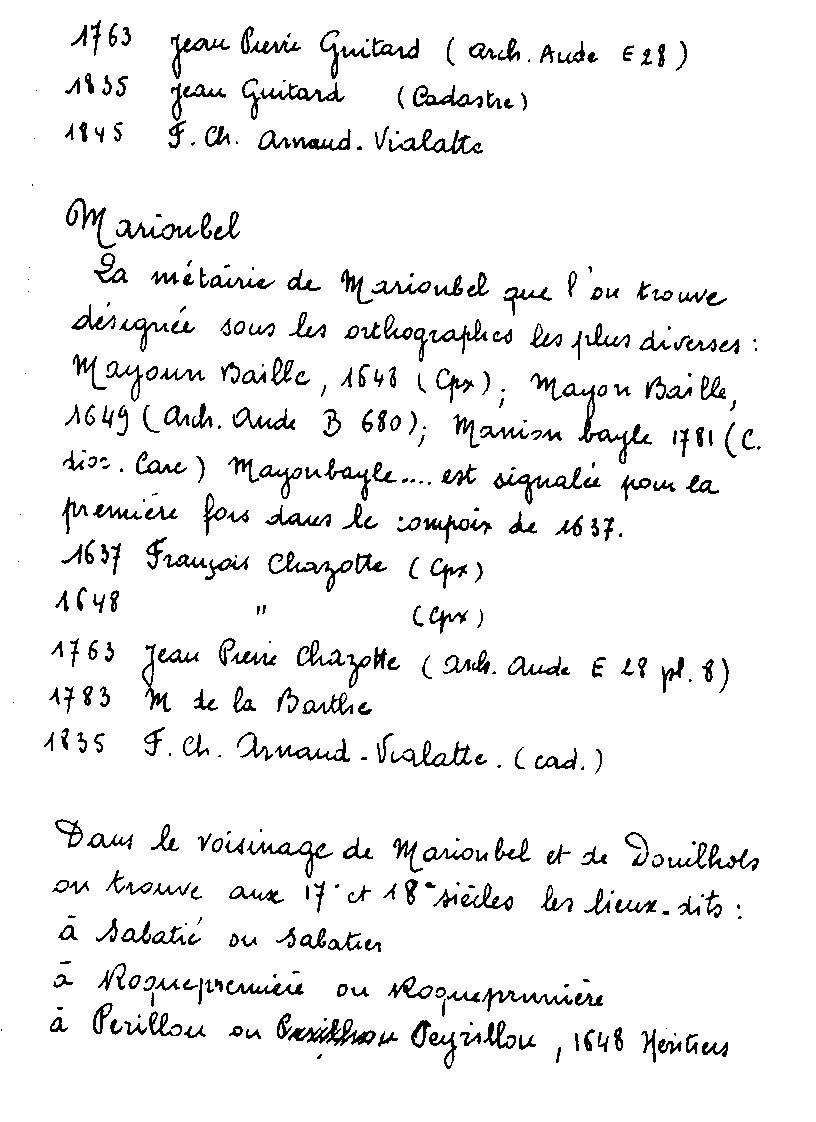 1763 Jean Pierre Guitard ( Arch. Aude E 28 )
1835 Jean Guitard ( Cadastre )
1845 F. Ch. Arnaud - Vialatte
Marioubel
La métairie de Marioubel que l'on trouve
désignée sous les orthographes les plus diverses :
Mayoun Baille, 1648 ( Cpx ); Mayon Baille,
1649 ( Arch. Aude B 680 ); Manion bayle 1781 ( C.
dioc. Carc ) Mayonbayle.... est signalée pour la
première fois dans le compoix de 1637.
1637 François Chazotte ( Cpx )
1648 " ( Cpx )
1763 Jean Pierre Chazotte ( Arch. Aude E 28 pl. 8 )
1783 M de la Barthe
1835 F. Ch. Arnaud - Vialatte. ( cad. )
Dans le voisinage de Marioubel et de Douilhols
on trouve aux 17e et 18e siècles les lieux-dits :
à Sabatié ou Sabatier
à Roquepremière ou Roqueprunière
à Perillou ou Peyrillou, 1648 Héritiers